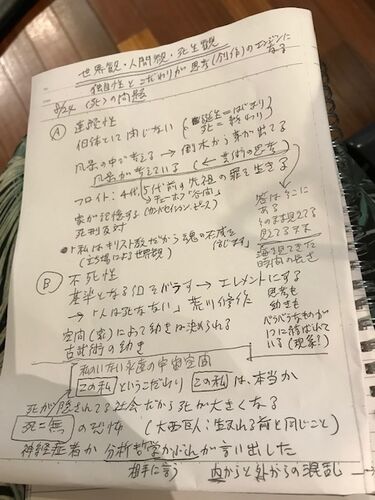 世界観・人間観・死生観
独自性とこだわりが思考(創作)のエンジンに
なる
8/24 (死)の問題
Ⓐ 連続性
個体として閉じない (誕生=はじまり
死=終わり
風景の中で考える → 倒木から芽が出てる
風景が考えている (← 芸術の思考)
フロイト:4代、5代前の先祖の罪を生きる
チェーホフ"谷間"
家が記憶する (カンバセイション・ピース)
死刑反対
「私はキリスト教だから魂の不滅を
信じます」
(立場による世界観)
答はそこに
ある
そのまま見えてる
見えてるすべて
時間の長さ
Ⓑ 不死性
基準となる個をバラす → エレメントにする
→ 「人は死なない」荒川修作
空間(家)によって動きは決められる
古武術の動き
思考も
動きも
バラバラなものが
1つに結ばれて
いる(現象?)
私のいない永遠の宇宙空間
この私 というこだわり この私 は、本当か
死が隠される社会だから死が大きくなる
死=無 の恐怖 (大西巨人:生まれる前と同じこと)
神経症者か分析哲学かぶれが言い出した
相手に言う 内からと外からの混乱 →